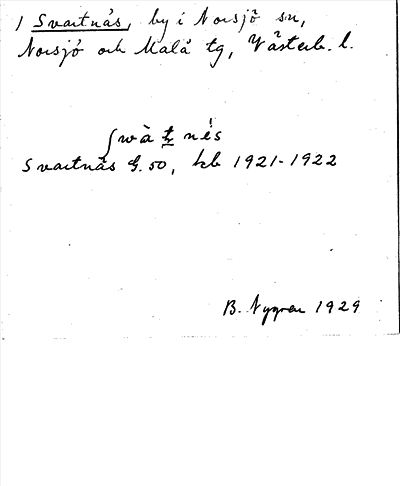 1 Svartnäs, by i Norsjö sn,
Norsjö och Malå tg, Västerb. l.
ʃwàṭnés
Svartnäs G. 50, kb 1921-1922
B. Nygren 1929